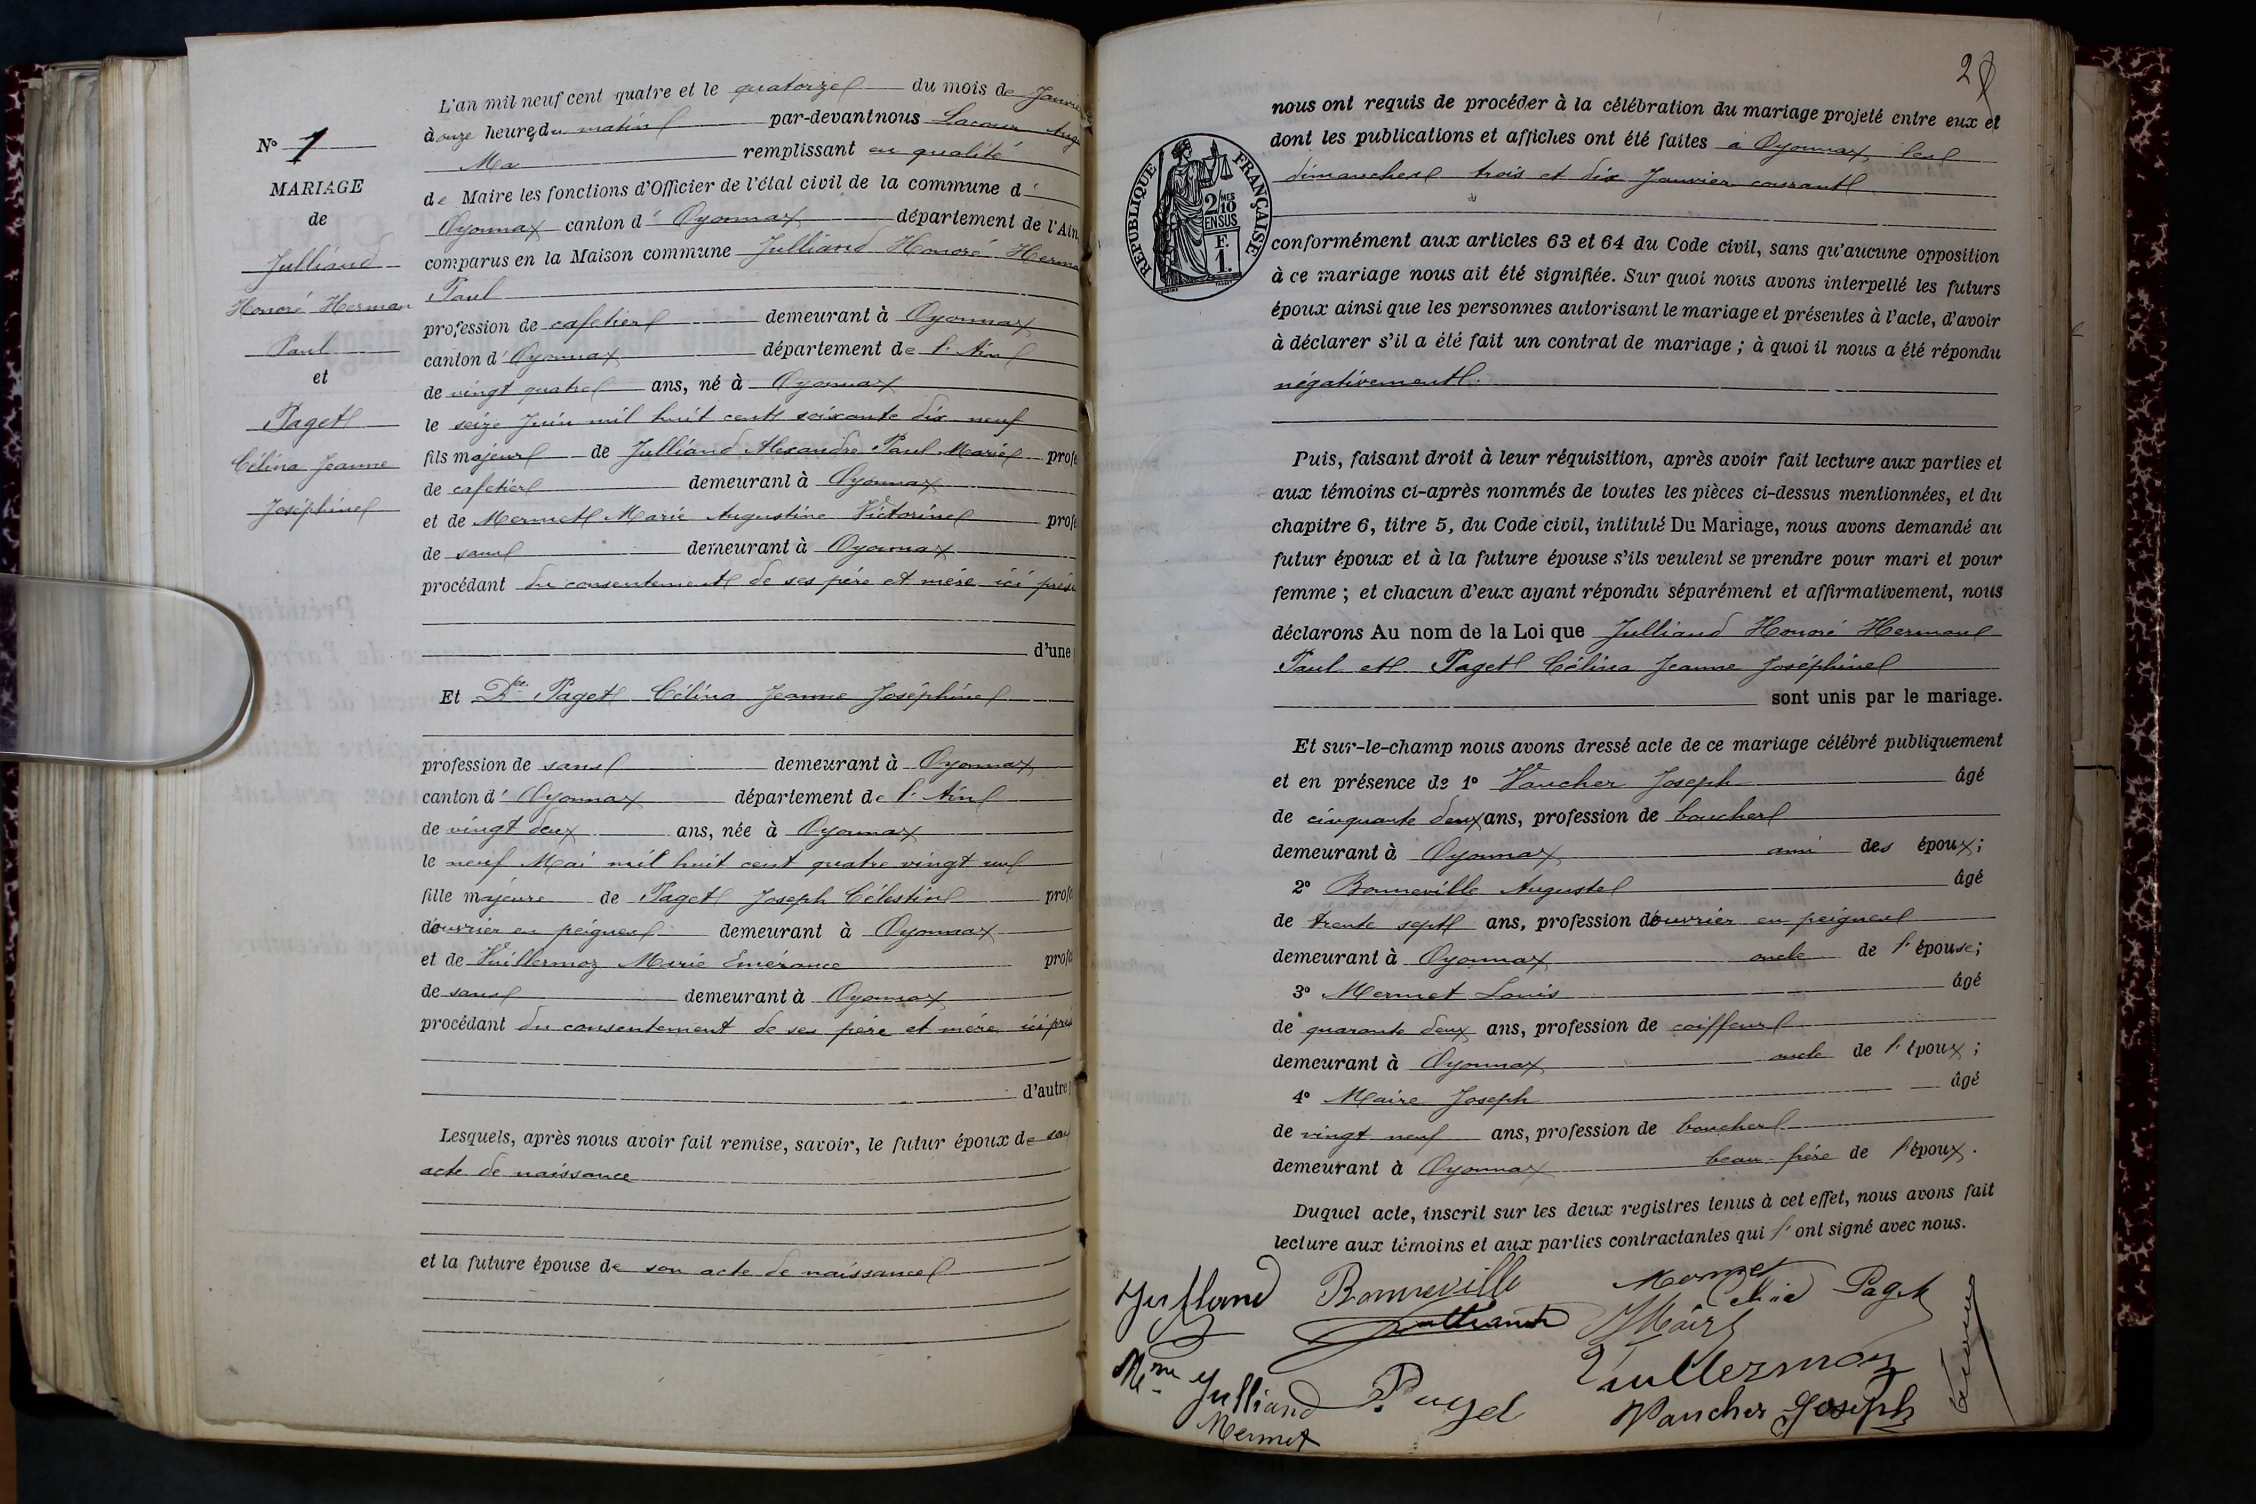 L'an mil neuf cent quatre et le quatorze du mois de Janvie
à onze heures du matin par-devant nous Lacour Aug
remplissant en qualité
N° 1
MARIAGE
de
Julliand
Honoré Herman
Paul
et
Paget
Célina Jeanne
Joséphine
de Maire les fonctions d'Officier de l'état civil de la commune d'
Oyonnax canton d' Oyonnax département de l'Ain
comparus en la Maison commune Julliand Honoré Herma
Paul
profession de cafetier demeurant à Oyonnax
canton d' Oyonnax département de l'Ain
de vingt quatre ans, né à Oyonnax
le seize Juin mil huit cent soixante dix neuf
fils majeur de Julliand Alexandre Paul Marie profe
de cafetier demeurant à Oyonnax
et de Mermet Marie Augustine Victorine profe
de sans demeurant à Oyonnax
procédant du consentement de ses père et mère ici prése
d'une
Et Dlle Paget Célina Jeanne Joséphine
profession de sans demeurant à Oyonnax
canton d' Oyonnax département de l'Ain
de vingt deux ans, née à Oyonnax
le neuf Mai mil huit cent quatre vingt un
fille majeure de Paget Joseph Célestin profe
d'ouvrier en peignes demeurant à Oyonnax
et de Vuillermoz Marie Emérance profe
de sans demeurant à Oyonnax
procédant du consentement de ses père et mère ici prés
d'autre
Lesquels, après nous avoir fait remise, savoir, le futur époux de son
acte de naissance
et la future épouse de son acte de naissance
2
nous ont requis de procéder à la célébration du mariage projeté entre eux et
dont les publications et affiches ont été faites à Oyonnax les
dimanches trois et dix Janvier courant
RÉPUBLIQUE FRANÇAISE
2/10 MES
EN SUS
F.
1.
conformément aux articles 63 et 64 du Code civil, sans qu'aucune opposition
à ce mariage nous ait été signifiée. Sur quoi nous avons interpellé les futurs
époux ainsi que les personnes autorisant le mariage et présentes à l'acte, d'avoir
à déclarer s'il a été fait un contrat de mariage ; à quoi il nous a été répondu
négativement.
Puis, faisant droit à leur réquisition, après avoir fait lecture aux parties et
aux témoins ci-après nommés de toutes les pièces ci-dessus mentionnées, et du
chapitre 6, titre 5, du Code civil, intitulé Du Mariage, nous avons demandé au
futur époux et à la future épouse s'ils veulent se prendre pour mari et pour
femme ; et chacun d'eux ayant répondu séparément et affirmativement, nous
déclarons Au nom de la Loi que Julliand Honoré Herman
Paul et Paget Célina Jeanne Joséphine
sont unis par le mariage.
Et sur-le-champ nous avons dressé acte de ce mariage célébré publiquement
et en présence de 1° Vaucher Joseph âgé
de cinquante deux ans, profession de boucher
demeurant à Oyonnax ami des époux ;
2° Bonneville Auguste âgé
de trente sept ans, profession d'ouvrier en peignes
demeurant à Oyonnax oncle de l'épouse ;
3° Mermet Louis âgé
de quarante deux ans, profession de coiffeur
demeurant à Oyonnax oncle de l'époux ;
4° Maire Joseph âgé
de vingt neuf ans, profession de boucher
demeurant à Oyonnax beau-frère de l'époux.
Duquel acte, inscrit sur les deux registres tenus à cet effet, nous avons fait
lecture aux témoins et aux parties contractantes qui l'ont signé avec nous.
Julliand Bonneville Mermet Célina Paget
Julliand JMaire
Mme Julliand Paget Vuillermoz
Mermet Vaucher Joseph